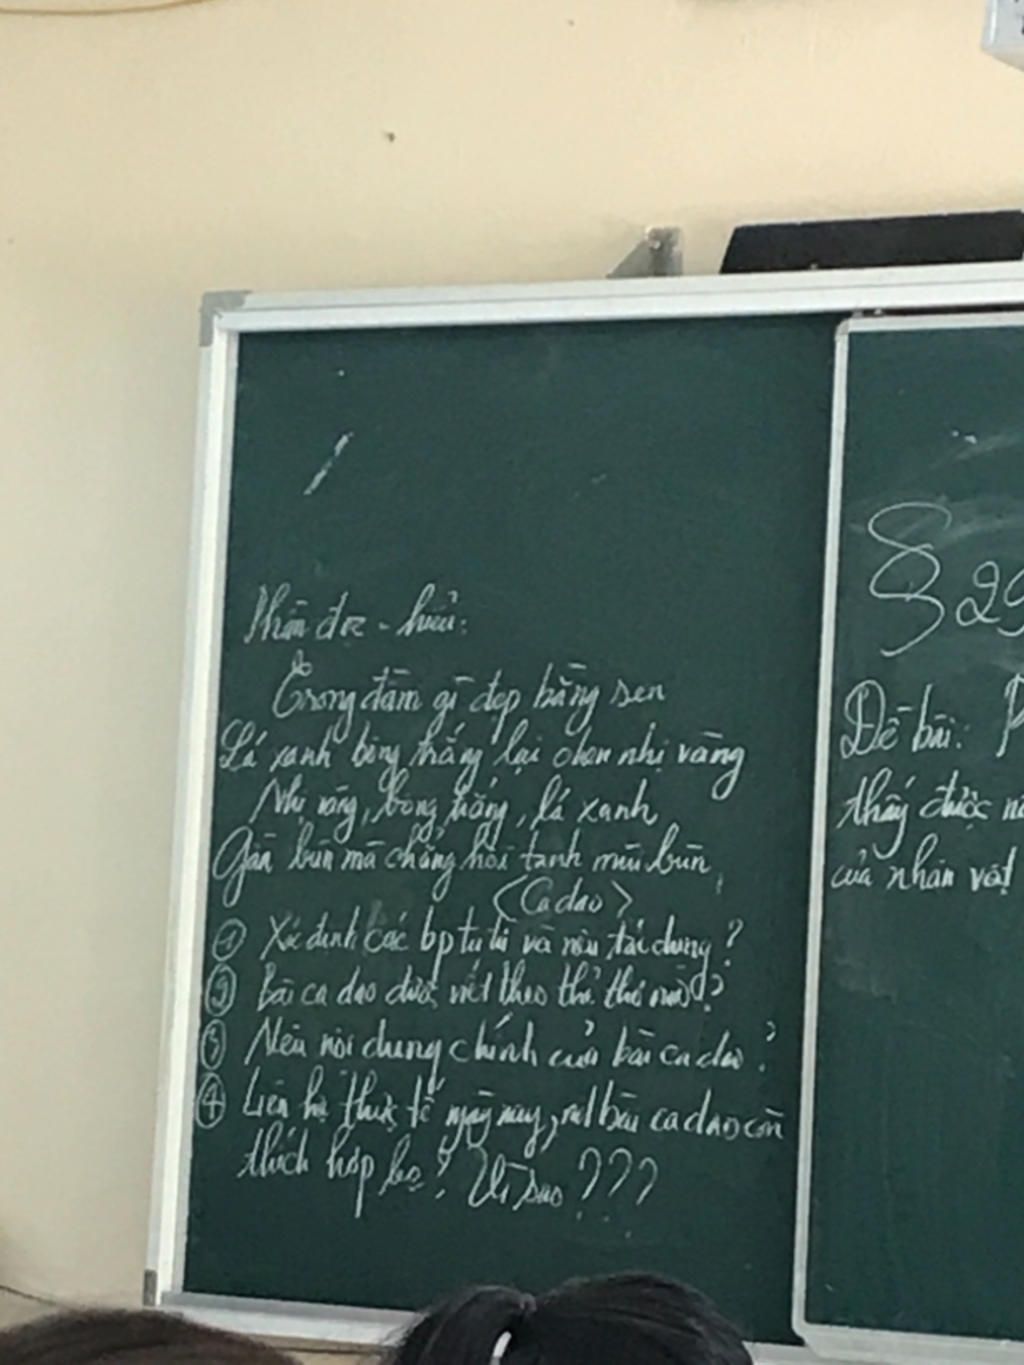 Phần đọc - hiểu:
Trong đầm gì đẹp bằng sen
Lá xanh bông trắng lại chen nhị vàng
Nhị vàng, bông trắng, lá xanh
Gần bùn mà chẳng hôi tanh mùi bùn
(Ca dao)
① Xác định các bp tu từ và nêu tác dụng?
② Bài ca dao được viết theo thể thơ nào?
③ Nêu nội dung chính của bài ca dao?
④ Liên hệ thực tế ngày nay, bài ca dao còn
thích hợp ko? Vì sao???
§ 29
Đề bài: P
thấy được
của nhân vật